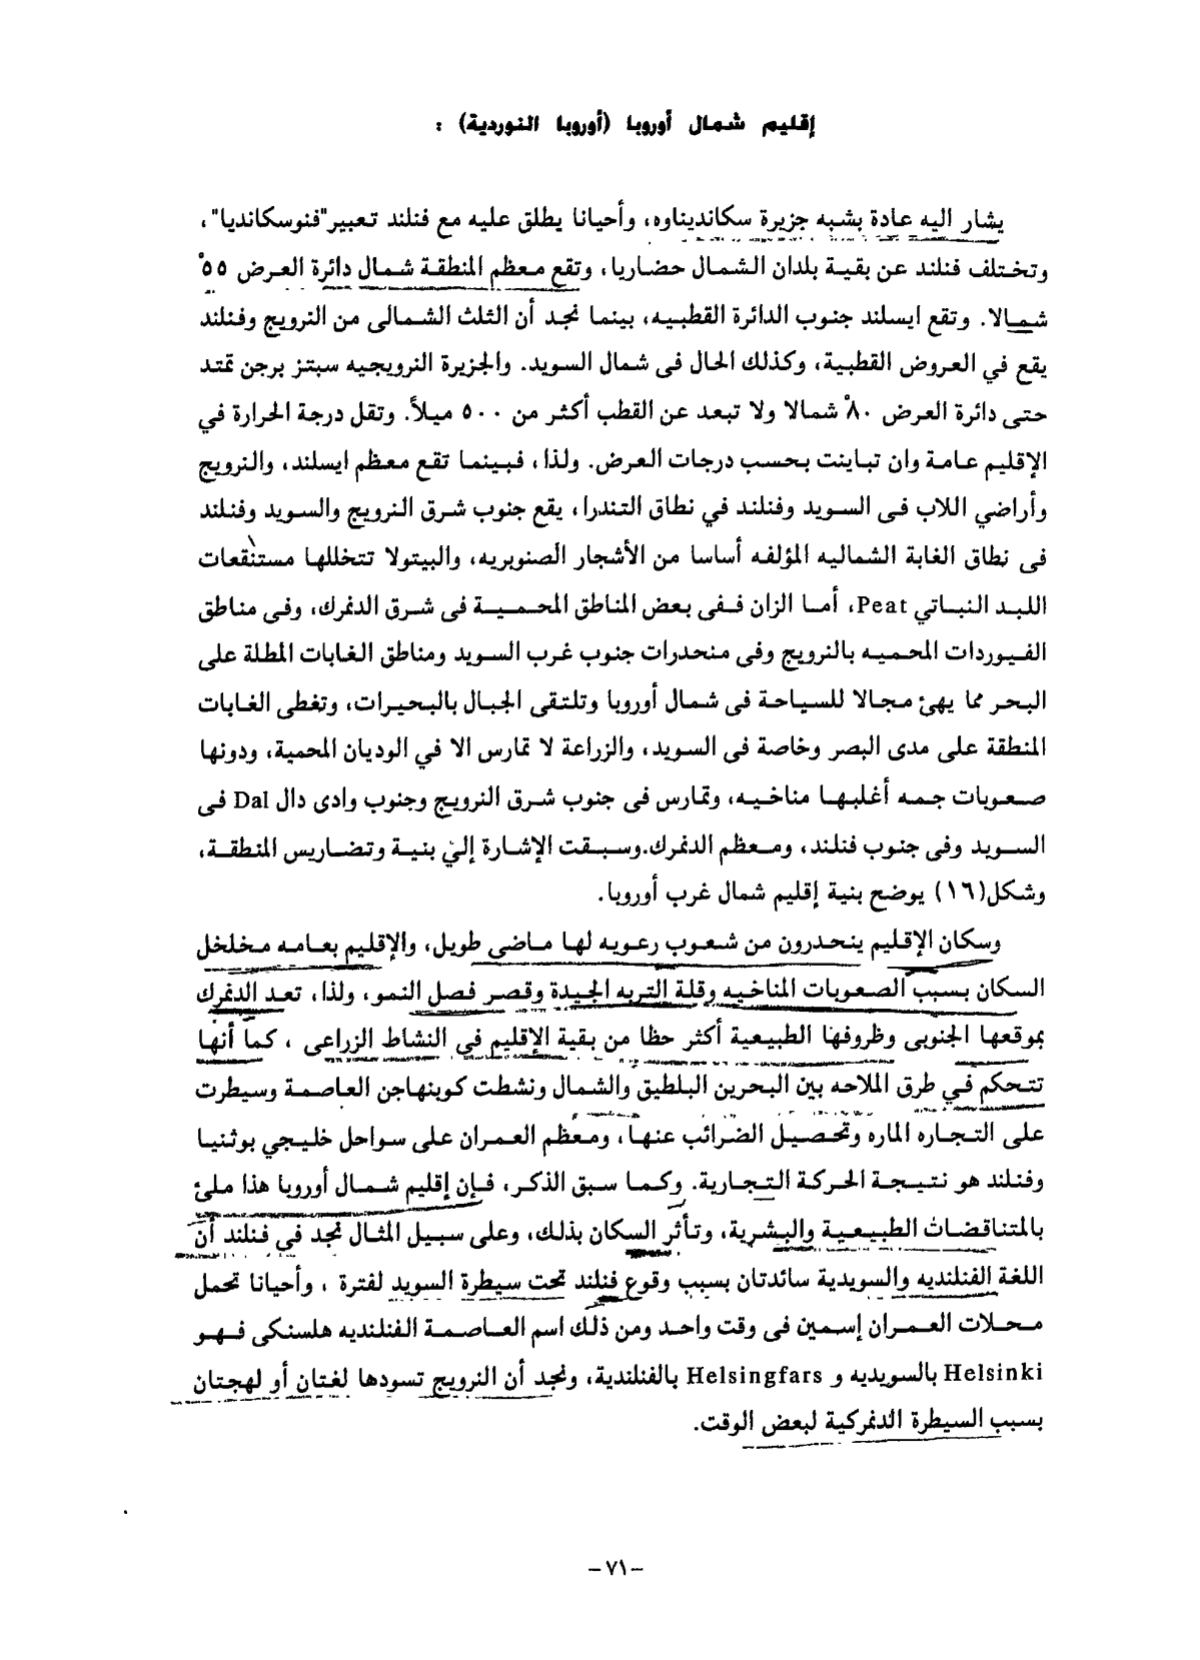 إقليم شمال أوروبا (أوروبا النوردية) :
يشار اليه عادة بشبه جزيرة سكانديناوه، وأحيانا يطلق عليه مع فنلند تعبير"فنوسكانديا"،
وتختلف فنلند عن بقية بلدان الشمال حضاريا، وتقع معظم المنطقة شمال دائرة العرض ٥٥°
شمالا. وتقع ايسلند جنوب الدائرة القطبيه، بينما نجد أن الثلث الشمالى من النرويج وفنلند
يقع في العروض القطبية، وكذلك الحال فى شمال السويد. والجزيرة النرويجيه سبتز برجن تمتد
حتى دائرة العرض ٨٠° شمالا ولا تبعد عن القطب أكثر من ٥٠٠ ميلاً. وتقل درجة الحرارة في
الإقليم عامة وان تباينت بحسب درجات العرض. ولذا، فبينما تقع معظم ايسلند، والنرويج
وأراضي اللاب فى السويد وفنلند في نطاق التندرا، يقع جنوب شرق النرويج والسويد وفنلند
فى نطاق الغابة الشماليه المؤلفه أساسا من الأشجار الصنوبريه، والبيتولا تتخللها مستنقعات
اللبد النباتي Peat، أما الزان ففى بعض المناطق المحمية فى شرق الدنمرك، وفى مناطق
الفيوردات المحميه بالنرويج وفى منحدرات جنوب غرب السويد ومناطق الغابات المطلة على
البحر مما يهئ مجالا للسياحة فى شمال أوروبا وتلتقى الجبال بالبحيرات، وتغطى الغابات
المنطقة على مدى البصر وخاصة فى السويد، والزراعة لا تمارس الا في الوديان المحمية، ودونها
صعوبات جمه أغلبها مناخيه، وتمارس فى جنوب شرق النرويج وجنوب وادى دال Dal فى
السويد وفى جنوب فنلند، ومعظم الدنمرك.وسبقت الإشارة إلى بنية وتضاريس المنطقة،
وشكل(١٦) يوضح بنية إقليم شمال غرب أوروبا.
وسكان الإقليم ينحدرون من شعوب رعويه لها ماضى طويل، والإقليم بعامه مخلخل
السكان بسبب الصعوبات المناخيه وقلة التربه الجيدة وقصر فصل النمو، ولذا، تعد الدنمرك
بموقعها الجنوبى وظروفها الطبيعية أكثر حظا من بقية الإقليم في النشاط الزراعى ، كما أنها
تتحكم في طرق الملاحه بين البحرين البلطيق والشمال ونشطت كوبنهاجن العاصمة وسيطرت
على التجاره الماره وتحصيل الضرائب عنها، ومعظم العمران على سواحل خليجي بوثنيا
وفنلند هو نتيجة الحركة التجارية. وكما سبق الذكر، فإن إقليم شمال أوروبا هذا ملئ
بالمتناقضات الطبيعية والبشرية، وتأثر السكان بذلك، وعلى سبيل المثال نجد في فنلند أن
اللغة الفنلنديه والسويدية سائدتان بسبب وقوع فنلند تحت سيطرة السويد لفترة ، وأحيانا تحمل
محلات العمران إسمين فى وقت واحد ومن ذلك اسم العاصمة الفنلنديه هلسنكى فهو
Helsinki بالسويديه و Helsingfars بالفنلندية، ونجد أن النرويج تسودها لغتان أو لهجتان
بسبب السيطرة الدنمركية لبعض الوقت.
-٧١-